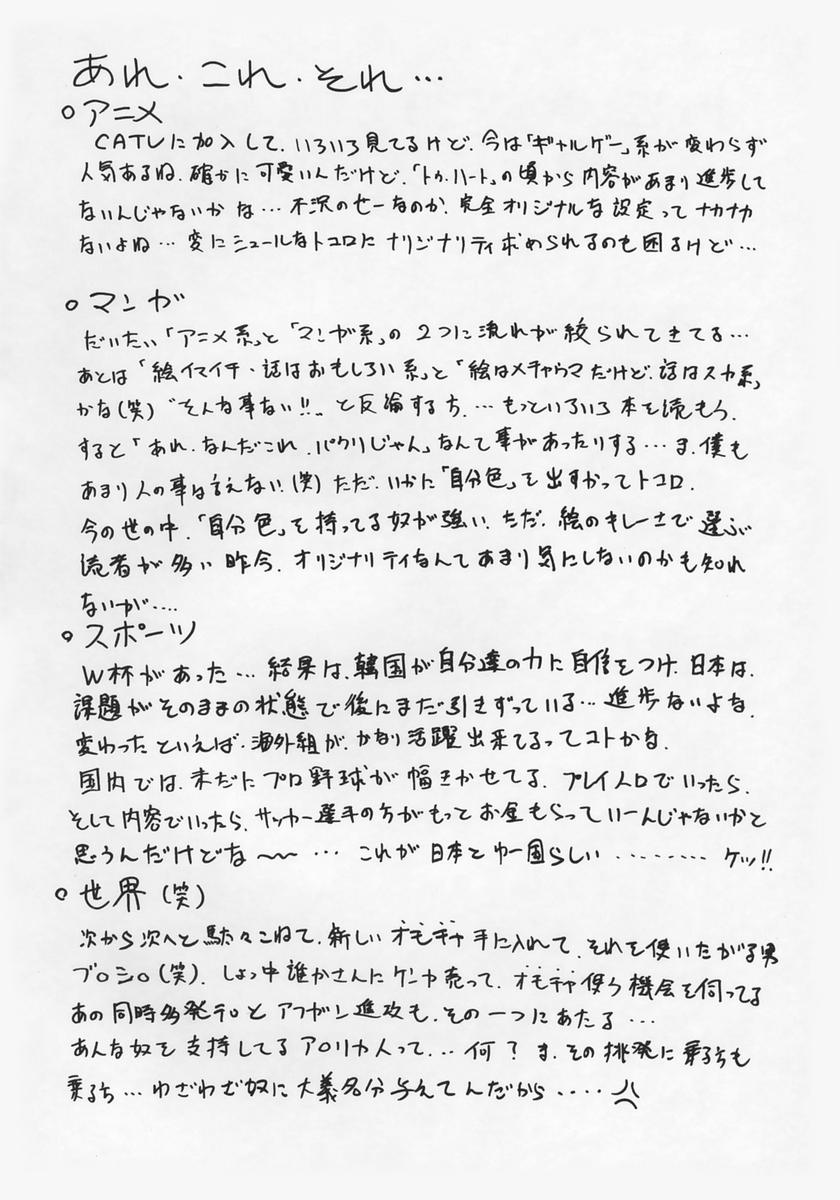 あれ・これ・それ…
○アニメ
CATVに加入して、いろいろ見てるけど、今は「ギャルゲー」系が変わらず
人気あるね。確かに可愛いんだけど、「トゥ・ハート」の頃から内容があまり進歩して
ないんじゃないかな…不況のせーなのか、完全オリジナルな設定ってナカナカ
ないよね…変にシュールなトコロにオリジナリティ求められるのも困るけど…
○マンガ
だいたい「アニメ系」と「マンガ系」の2つに流れが絞られてきてる…
あとは「絵イマイチ・話はおもしろい系」と「絵はメチャウマだけど、話はスカ系」
かな(笑)“そんな事ない!!”と反論する方、…もっといろいろ本を読もう。
すると「あれ、なんだこれ、パクリじゃん」なんて事があったりする…ま、僕も
あまり人の事は言えない(笑)ただ、いかに「自分色」を出すかってトコロ。
今の世の中、「自分色」を持ってる奴が強い、ただ、絵のキレーさで選ぶ
読者が多い昨今、オリジナリティなんてあまり気にしないのかも知れ
ないが‥‥
○スポーツ
W杯があった…結果は、韓国が自分達の力に自信をつけ、日本は、
課題がそのままの状態で後にまだ引きずっている…進歩ないよな。
変わったといえば、海外組が、かなり活躍出来てるってコトかな。
国内では、未だにプロ野球が幅きかせてる。プレイ人口でいったら、
そして内容でいったら、サッカー選手の方がもっとお金もらっていーんじゃないかと
思うんだけどな〜〜…これが日本とゆー国らしい‥‥‥‥ケッ!!
○世界(笑)
次から次へと駄々こねて、新しいオモチャ手に入れて、それを使いたがる男
ブ○シ○(笑)。しょっ中誰かさんにケンカ売って、オモチャ使う機会を伺ってる
あの同時多発テロとアフガン進攻も、その一つにあたる…
あんな奴を支持してるア○リカ人って…何?ま、その挑発に乗る方も
乗る方…わざわざ奴に大義名分与えてんだから‥‥